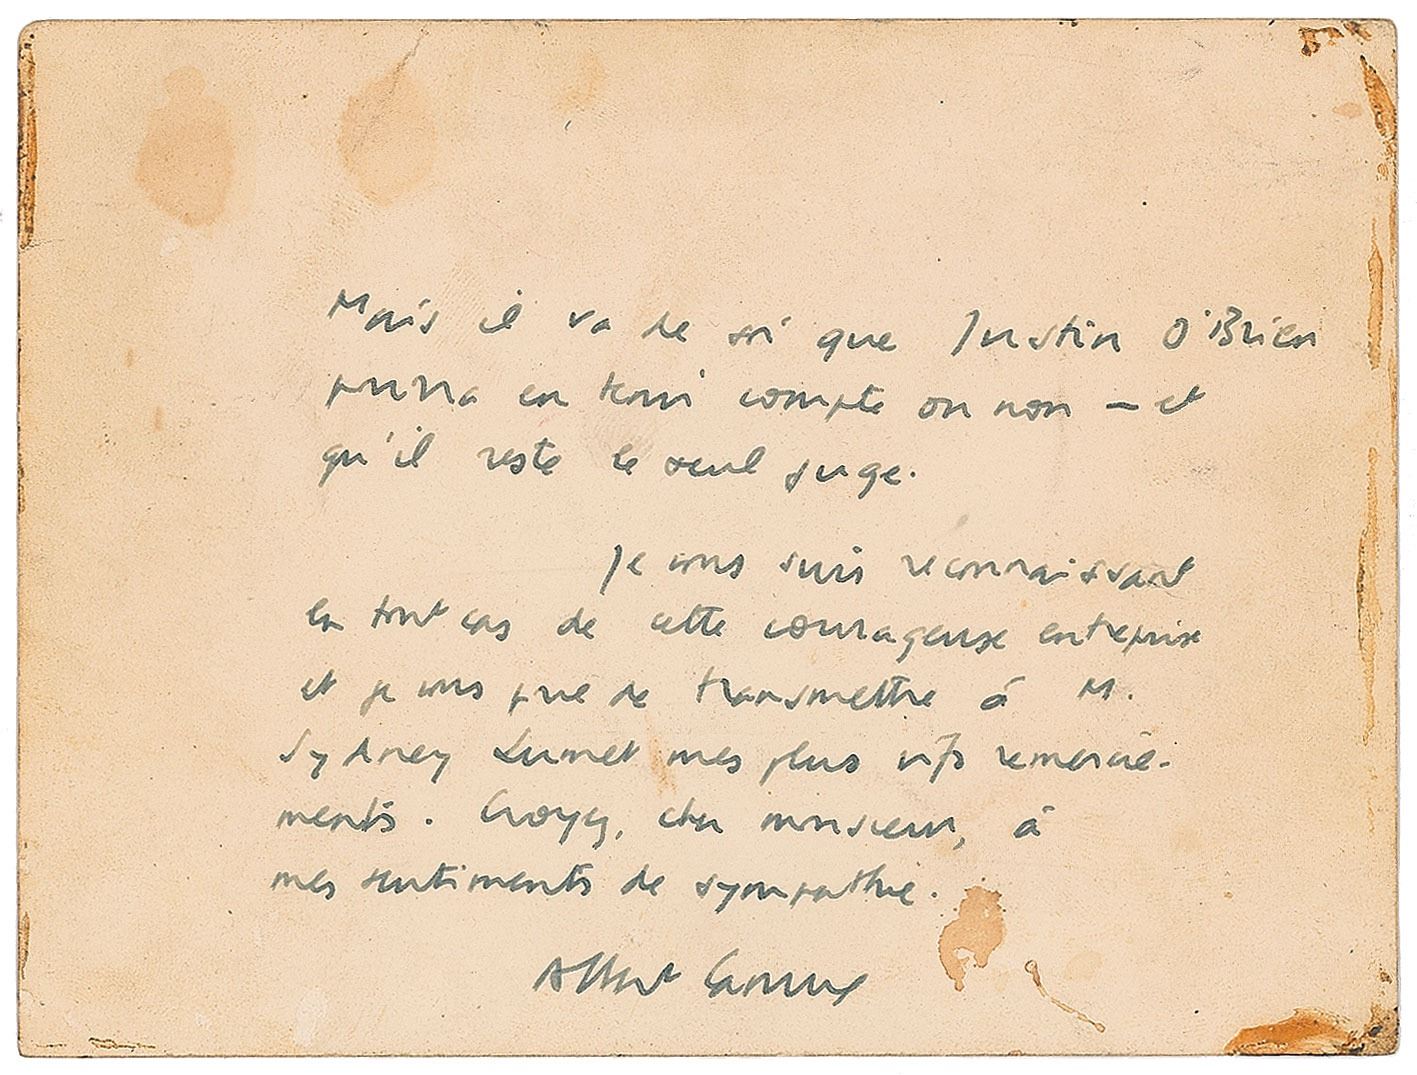 Mais il va de soi que Justin O'Brien
pourra en tenir compte ou non – et
qu'il reste le seul juge.
Je vous suis reconnaissant
en tout cas de cette courageuse entreprise
et je vous prie de transmettre à M.
Sydney Lumet mes plus vifs remercie-
ments. Croyez, cher monsieur, à
mes sentiments de sympathie.
Albert Camus